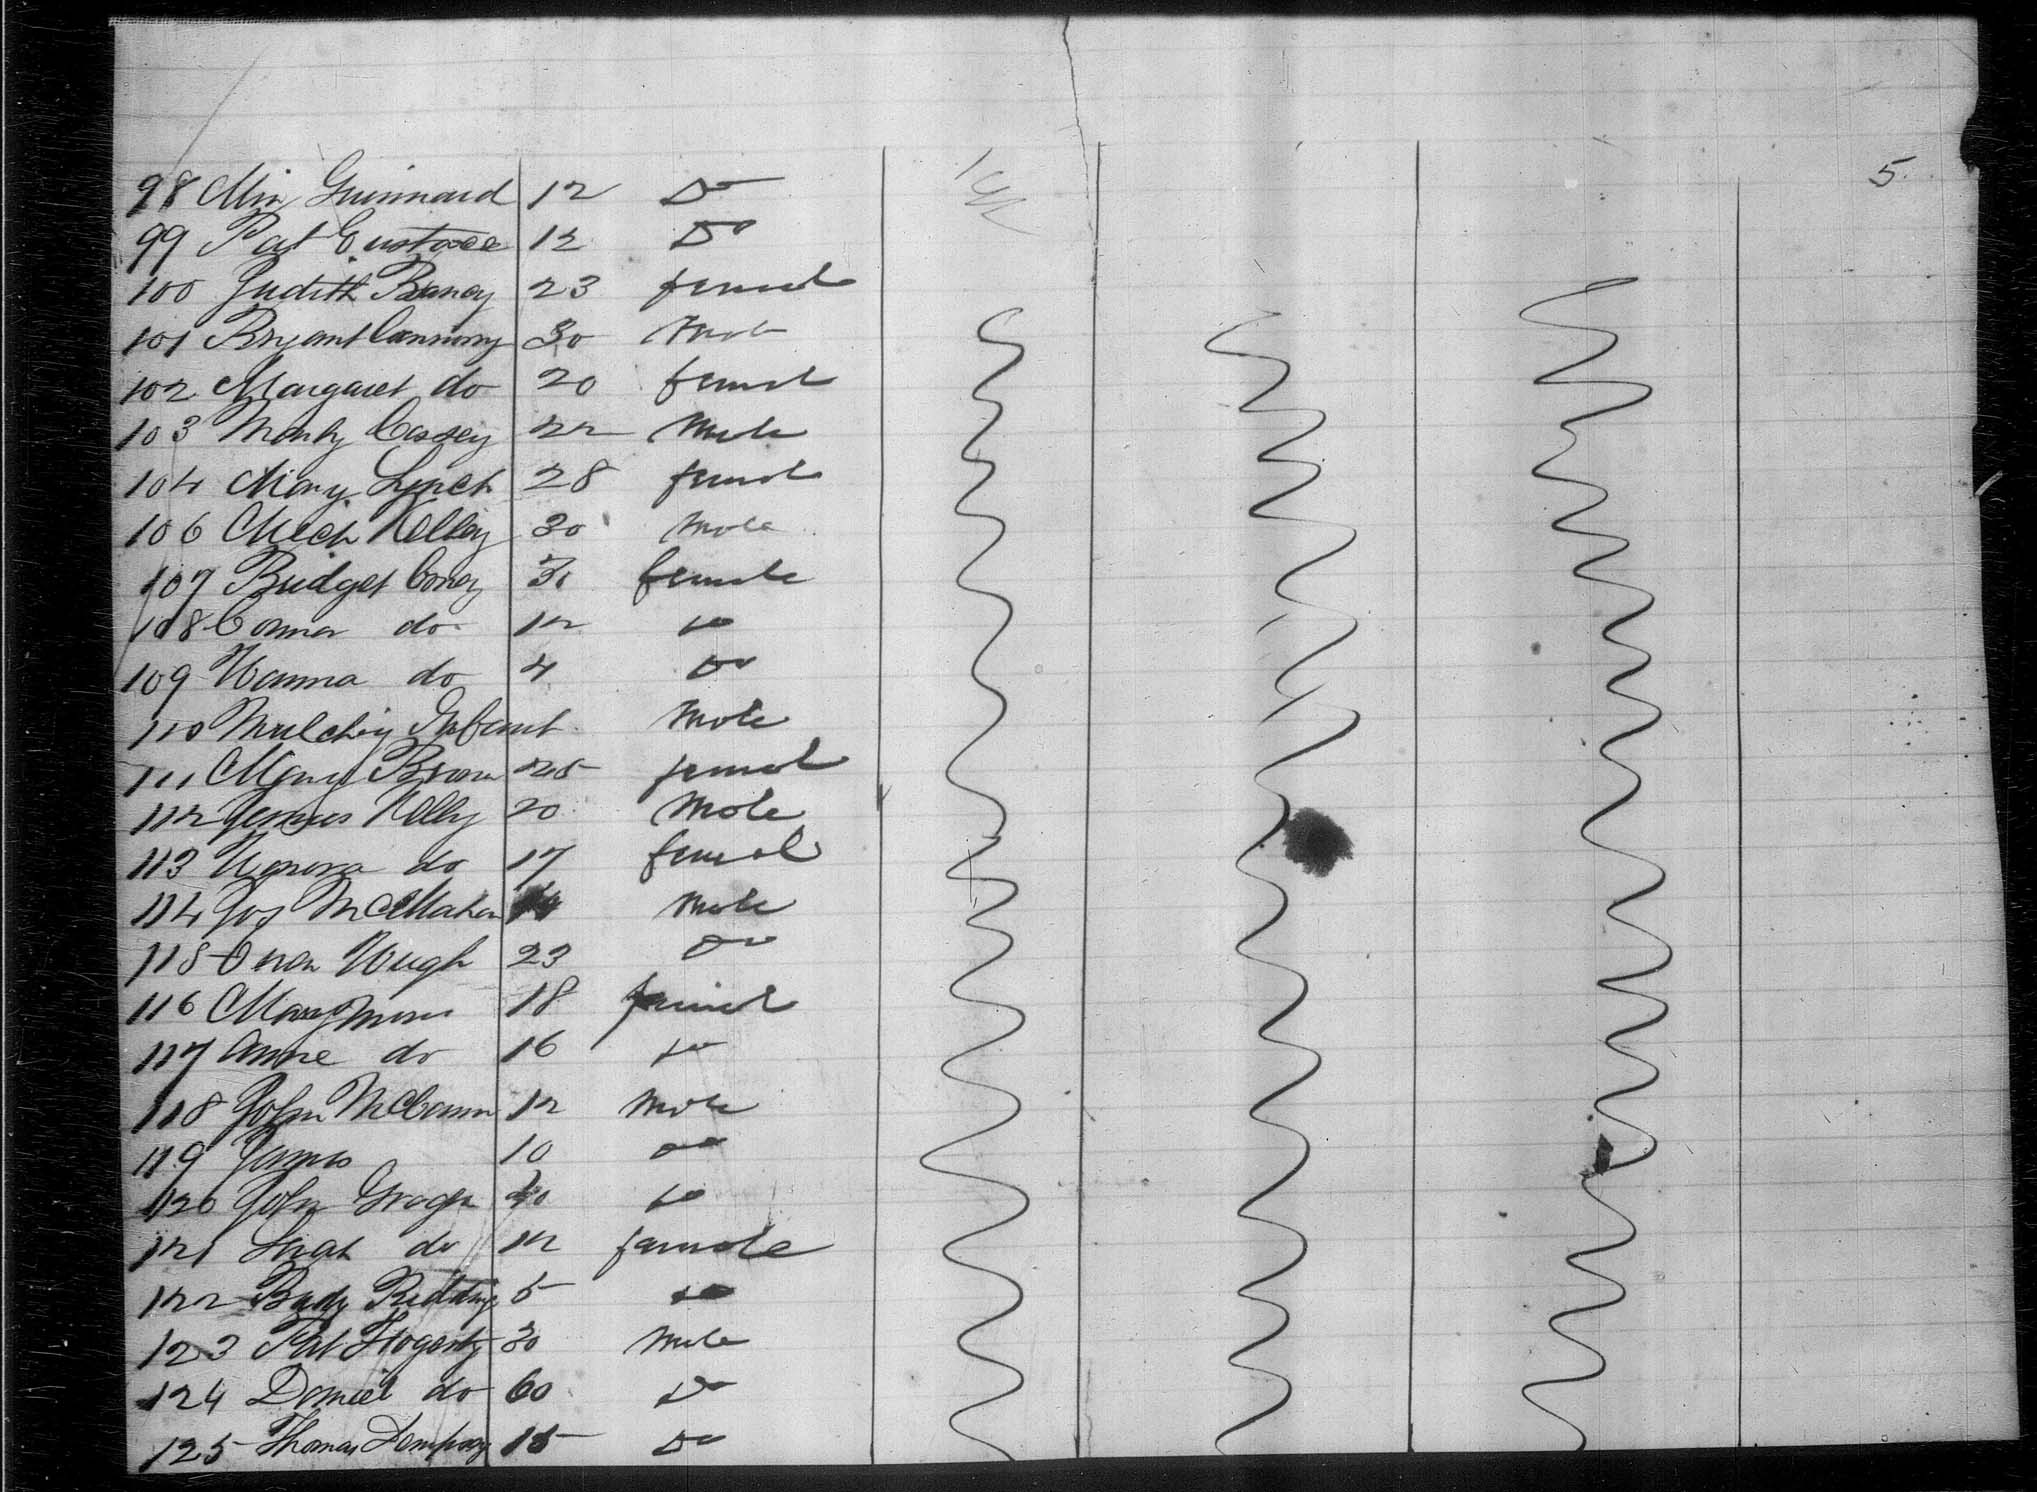 5.
98 Guinnard 12 Do
99 Pat Eustace 12 Do
100 Judith 23 femal
101 Bryant 30 Male
102 Margaret do 20 femal
103 Cassey 22 Male
104 Mary Lynch 28 femal
106 Mich Kelley 30 Male
107 Bridget Coney female
108 do 12 Do
109 Hanna do 4 Do
110 Infant Male
111 Mary Brown 25 femal
112 James Kelly 20 Male
113 Honora do 17 femal
114 Jos McMahon Male
115 Owen Hugh 23 Do
116 Mary 18 femal
117 Anne do 16 Do
118 John McCann 12 Male
119 James 10 Do
120 John Do
121 do 12 famale
122 Redding 5 Do
123 Pat Hogerty 30 Male
124 Daniel do 60 Do
125 Thomas Dempsey 15 Do